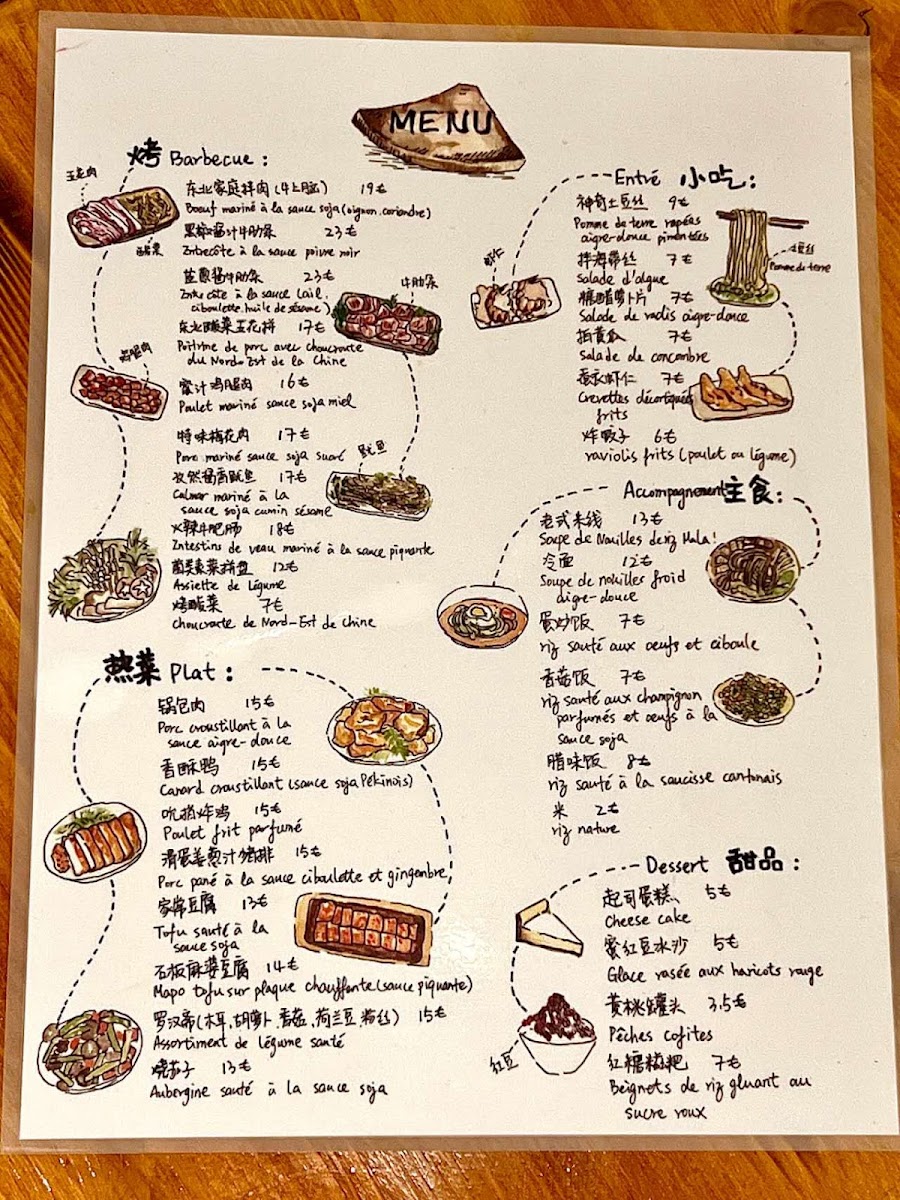 MENU
烤 Barbecue :
五花肉
酸菜
东北家庭拌肉(牛上脑) 19€
Boeuf mariné à la sauce soja (oignon, coriandre)
黑椒酱汁牛肋条 23€
Entrecôte à la sauce poivre noir
23€
Entrecôte à la sauce (ail, ciboulette, huile de sésame)
牛肋条
东北酸菜五花拼 17€
Poitrine de porc avec choucroute
du Nord-Est de la Chine
鸡腿肉
蜜汁鸡腿肉 16€
Poulet mariné sauce soja miel
特味梅花肉 17€
Porc mariné sauce soja sucré
鱿鱼
孜然酱香鱿鱼 17€
Calmar mariné à la
sauce soja cumin sésame
火辣牛肥肠 18€
Intestins de veau mariné à la sauce piquante
菌类素菜拼盘 12€
Assiette de légume
烤酸菜 7€
choucroute de Nord-Est de Chine
热菜 Plat :
锅包肉 15€
Porc croustillant à la
sauce aigre-douce
香酥鸭 15€
Canard croustillant (sauce soja Pékinois)
炸鸡 15€
Poulet frit parfumé
滑蛋姜葱汁猪排 15€
Porc pané à la sauce ciboulette et gingembre
家常豆腐 13€
Tofu sauté à la
sauce soja
石板麻婆豆腐 14€
Mapo tofu sur plaque chauffante (sauce piquante)
罗汉斋(木耳,胡萝卜,香菇,荷兰豆,粉丝) 15€
Assortiment de légume sauté
烧茄子 13€
Aubergine sauté à la sauce soja
Entré 小吃 :
虾仁
神奇土豆丝 9€
Pomme de terre rapées
aigre-douce pimentées
土豆丝
Pomme de terre
拌海带丝 7€
Salade d'algue
糖醋萝卜片 7€
Salade de radis aigre-douce
拍黄瓜 7€
salade de concombre
虾仁 7€
Crevettes décortiquées
frits
炸饺子 6€
raviolis frits (poulet ou légume)
Accompagnement 主食 :
老式米线 13€
Soupe de Nouilles de riz Mala!
冷面 12€
Soupe de nouilles froid
aigre-douce
蛋炒饭 7€
riz sauté aux oeufs et ciboule
香菇饭 7€
riz sauté aux champignon
parfumés et oeufs à la
sauce soja
腊味饭 8€
riz sauté à la saucisse cantonais
米 2€
riz nature
Dessert 甜品 :
起司蛋糕 5€
Cheese cake
蜜红豆冰沙 5€
Glace rasée aux haricots rouge
红豆
黄桃罐头 3.5€
Pêches cofites
红糖糍粑 7€
Beignets de riz gluant au
sucre roux